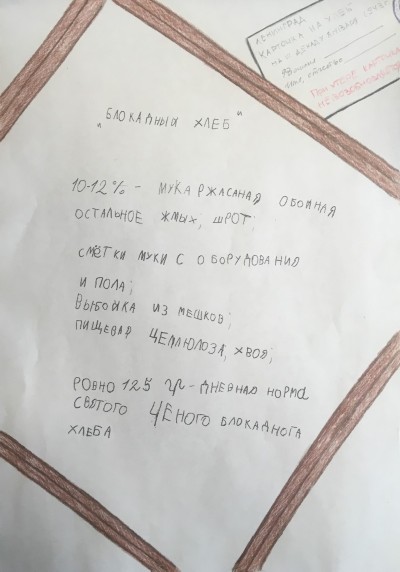 ЛЕНИНГРАД
КАРТОЧКА НА ХЛЕБ
ПРИ УТЕРЕ КАРТОЧКА
НЕ ВОЗОБНОВЛЯЕТСЯ
"БЛОКАДНЫЙ ХЛЕБ"
10-12% - МУКА РЖАСАНАЯ ОБОЙНАЯ
ОСТАЛЬНОЕ ЖМЫХ, ШРОТ;
СМЁТКИ МУКИ С ОБОРУДОВАНИЯ
И ПОЛА;
ВЫБОЙКА ИЗ МЕШКОВ;
ПИЩЕВАЯ ЦЕЛЛЮЛОЗА, ХВОЯ;
РОВНО 125 гр - ДНЕВНАЯ НОРМА
СВЯТОГО ЧЁНОГО БЛОКАДНОГА
ХЛЕБА